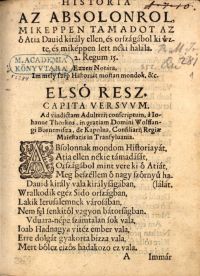 HISTORIA
AZ ABSOLONROL
MIKEPPEN TAMADOT AZ
ő Atia Dauid király ellen, és országából ki űz-
te, és miképpen lett néki halála.
2. Regum 15.
M. ACADEMIA
KÖNYVTARA
Ezen Notára,
Im mely szép Historiát mostan mondok, &c.
ELSŐ RESZ,
CAPITA VERSVVM.
Ad viuidictam Adulterij conscriptum, à Io-
hanne Thordea, in gratiam Domini Wolffan-
gi Bornemisza, de Kapolna, Consiliarij Regiæ
Maiestatis in Transylvania.
ABsolonnak mondom Historiáját,
Atia ellen nékie támadását,
Országából mint vere ki ő Atiát,
Meg beszéllem ő nagy szörnyű ha-
Dauid király vala királyságában, (lálát.
Wralkodik egéz Sidó országban,
Lakik Ierusalemnec városában,
Nem fél senkitől vagyon bátorságban.
Vduarnépe számtalan sok vala,
Ioab Hadnagya vitéz ember vala,
Erre dolgát gyakorta bizza vala,
Mert bölcz eszős hadakozó ez vala.
A
Immár